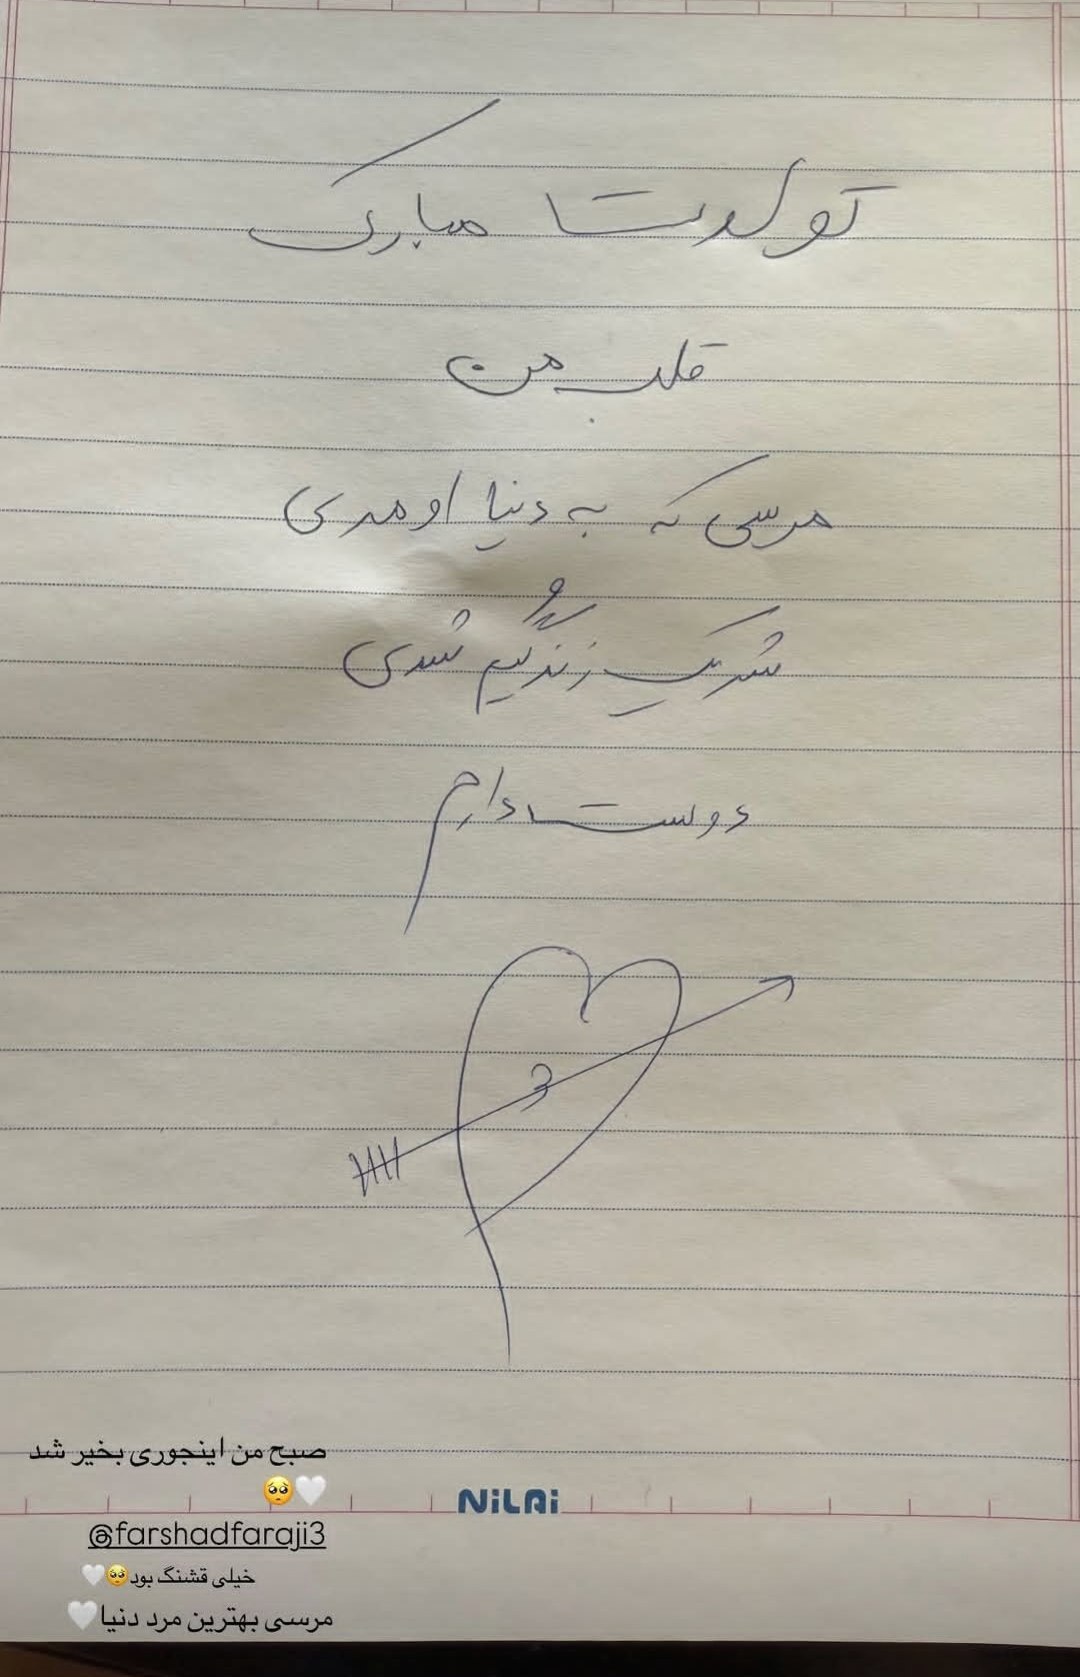 تولدت مبارک
قلب من
مرسی که به دنیا اومدی
و
شریک زندگیم شدی
دوست دارم
صبح من اینجوری بخیر شد
🥺🤍
NiLAi
@farshadfaraji3
خیلی قشنگ بود🥺🤍
مرسی بهترین مرد دنیا🤍